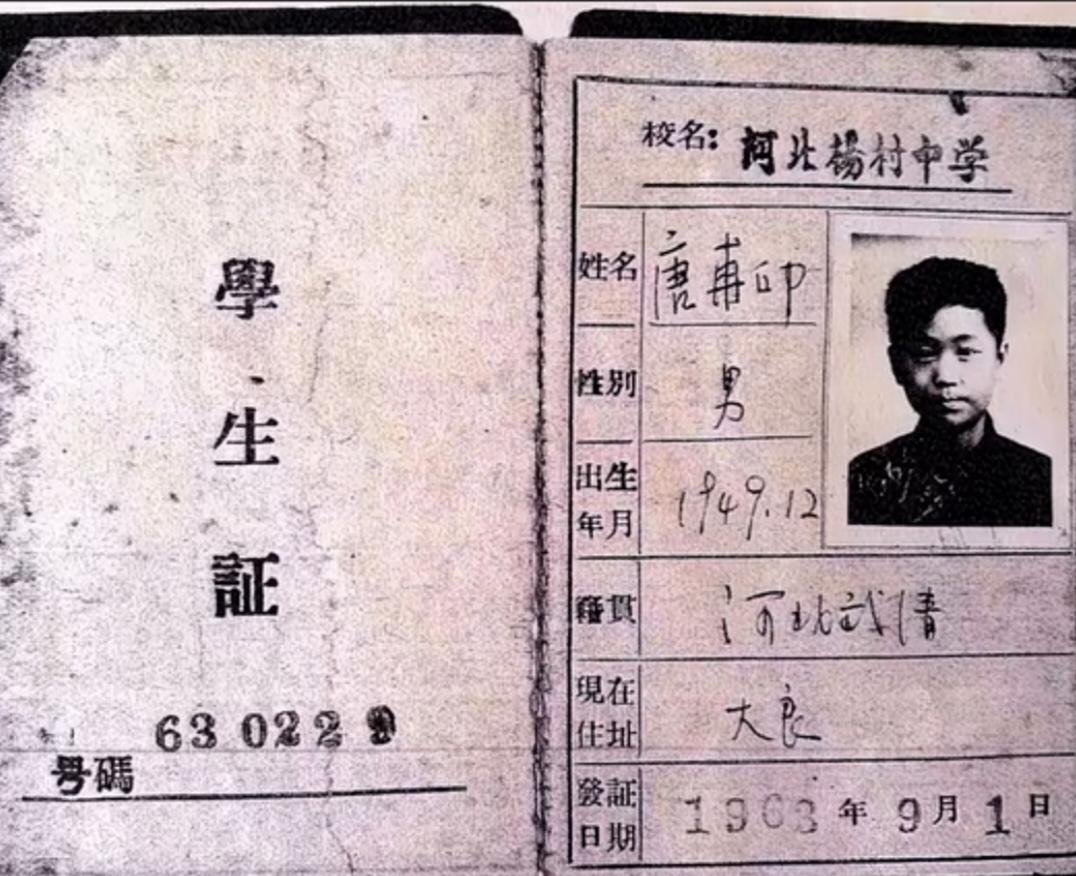 學
生
証
630229
号碼
校名：河北楊村中学
姓名 唐甫印
性別 男
出生年月 1949.12
籍貫 河北武清
現在住址 大良
發証日期 1963年9月1日